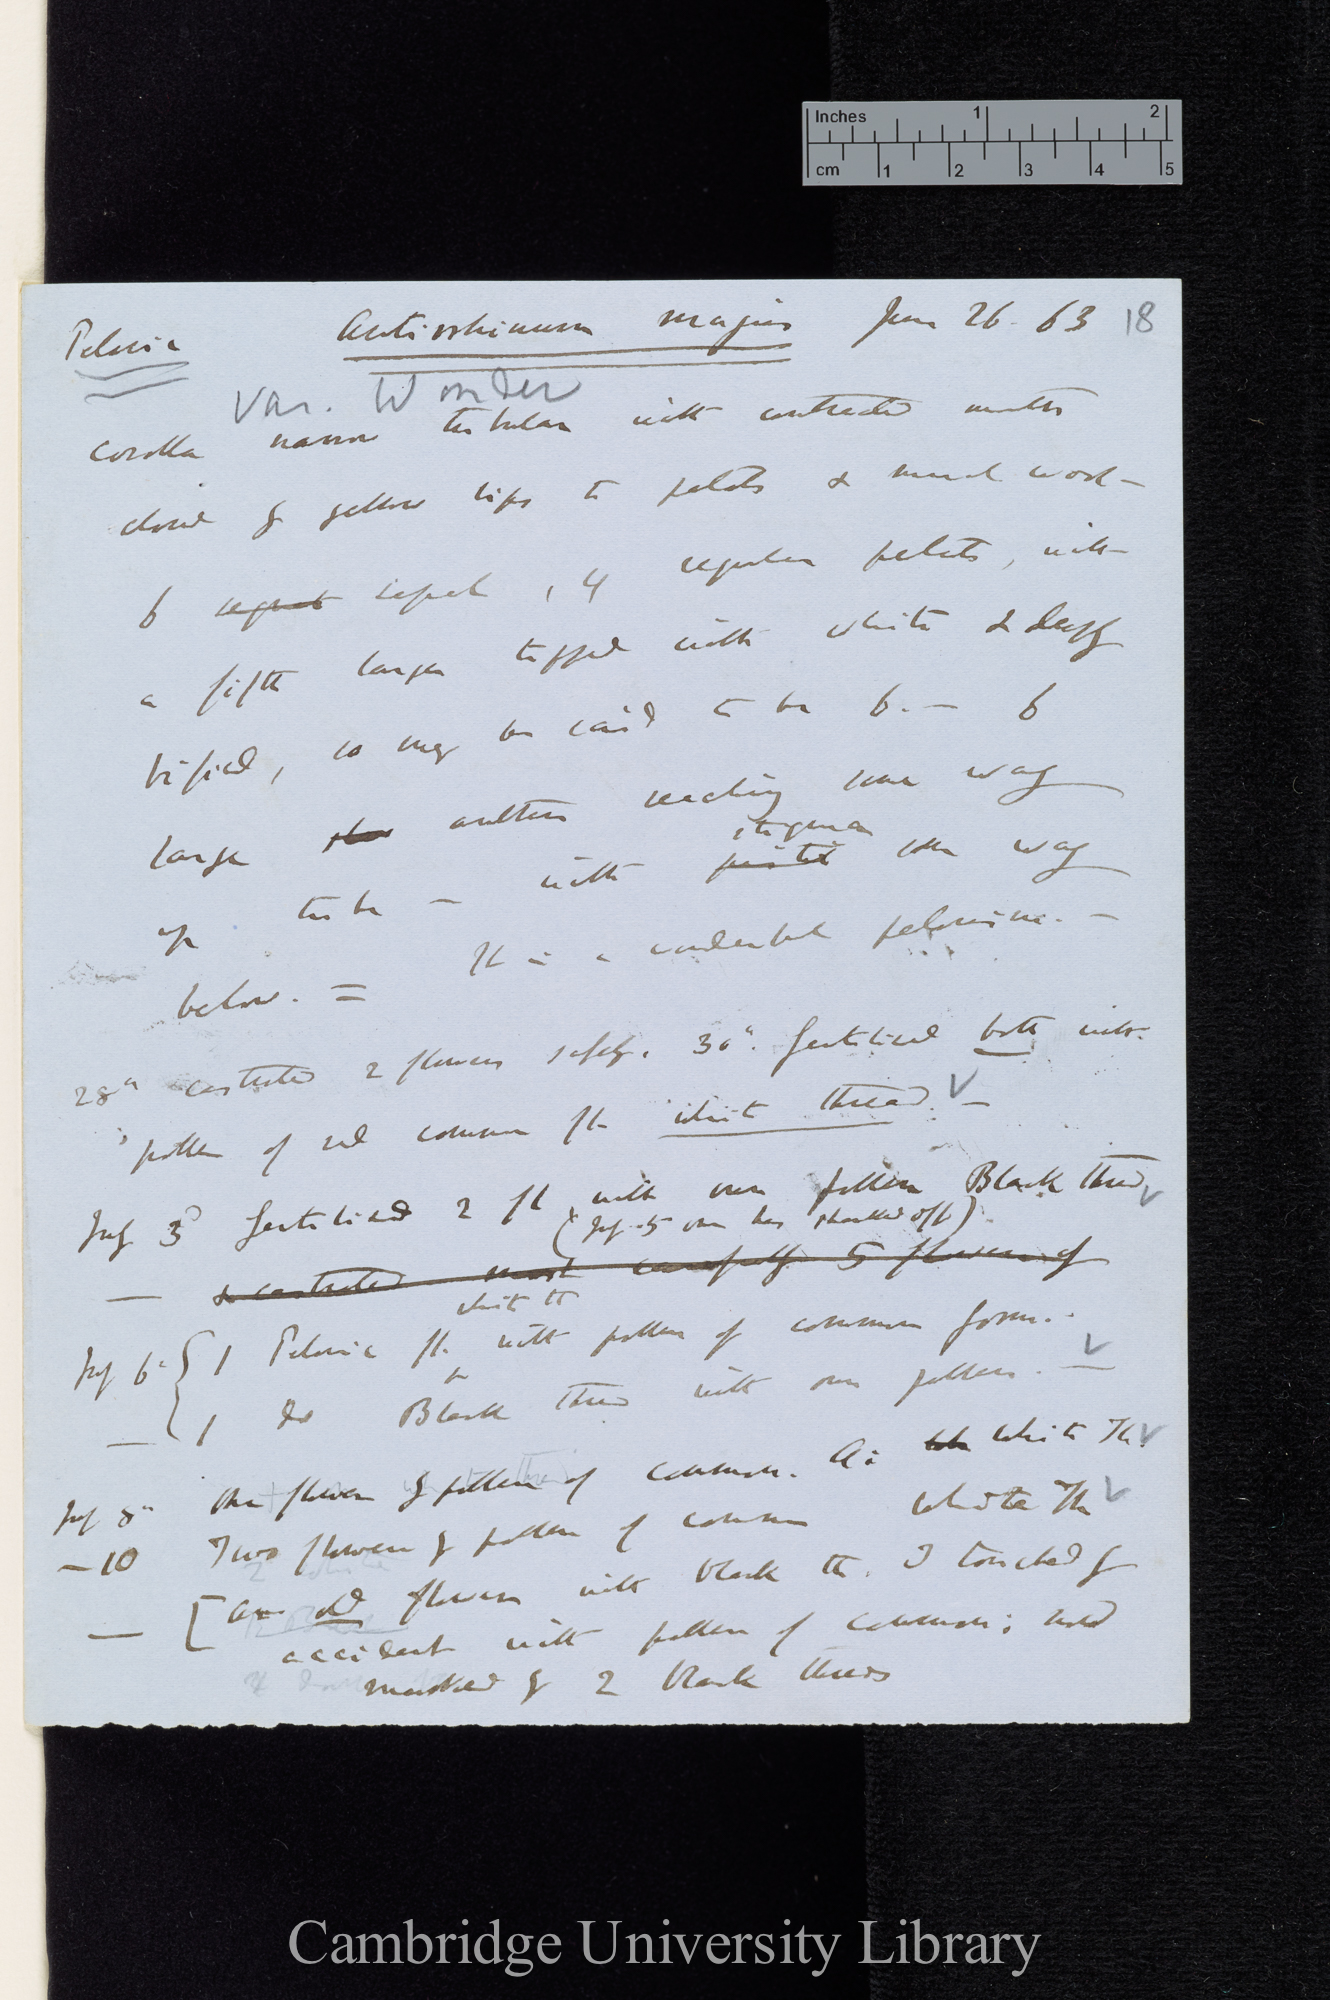 Inches 1 2
cm 1 2 3 4 5
Peloria Antirrhinum majus June 26. 63 18
Var. Wonder
corolla narrow tubular with contracted mouth
closed by yellow lips to petals & much wool —
6 sepals, 4 regular petals, with
a fifth larger tipped with white & deeply
bifid, so may be said to be 6. — 6
large anthers reaching some way
stigma
up tube — with pistil some way
below. = It is a wonderful pelorism. —
28th castrated 2 flowers safely. 30th. fertilised both with
pollen of red common fl. white thread. —
July 3d fertilised 2 fl. with own pollen Black thread
(July 5 one has shanked off)
— & castrated most carefully 5 flowers of
white th
July 6th { 1 Peloric fl. with pollen of common form.
— 1 do Black thread with own pollen. —
July 8th One flower by pollen of common. White Th.
— 10 Two flowers by pollen of common White Th
— [An old flower with black th. I touched by
accident with pollen of common;
marked by 2 black threads
Cambridge University Library